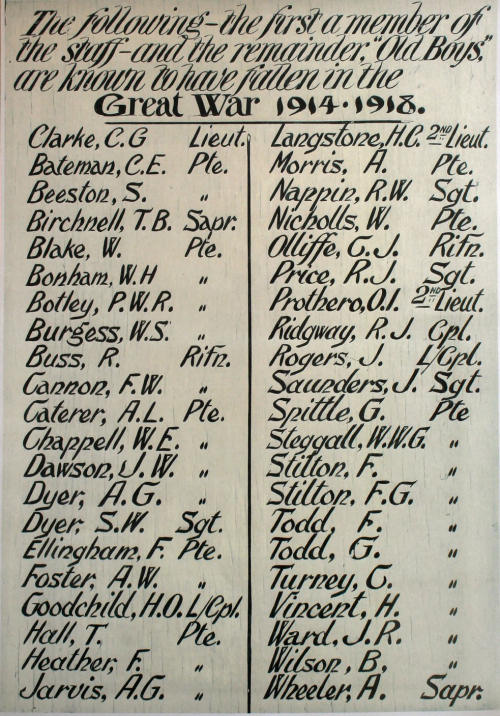 The following – the first a member of
the staff – and the remainder, "Old Boys,"
are known to have fallen in the
Great War 1914·1918.
Clarke, C.G Lieut.
Bateman, C.E. Pte.
Beeston, S. "
Birchnell, T.B. Sapr.
Blake, W. Pte.
Bonham, W.H "
Botley, P.W.R. "
Burgess, W.S. "
Buss, R. Rifn.
Cannon, F.W. "
Caterer, A.L. Pte.
Chappell, W.E. "
Dawson, J.W. "
Dyer, A.G. "
Dyer, S.W. Sgt.
Ellingham, F. Pte.
Foster, A.W. "
Goodchild, H.O. L/Cpl.
Hall, T. Pte.
Heather, F. "
Jarvis, A.G. "
Langstone, H.C. 2ND Lieut.
Morris, A. Pte.
Nappin, R.W. Sgt.
Nicholls, W. Pte.
Olliffe, C.J. Rifn.
Price, R.J. Sgt.
Prothero, O.I. 2ND Lieut.
Ridgway, R.J. Cpl.
Rogers, J. L/Cpl.
Saunders, J. Sgt.
Spittle, G. Pte
Steggall, W.W.G. "
Stilton, F. "
Stilton, F.G. "
Todd, F. "
Todd, G. "
Turney, C. "
Vincent, H. "
Ward, J.R. "
Wilson, B, "
Wheeler, A. Sapr.